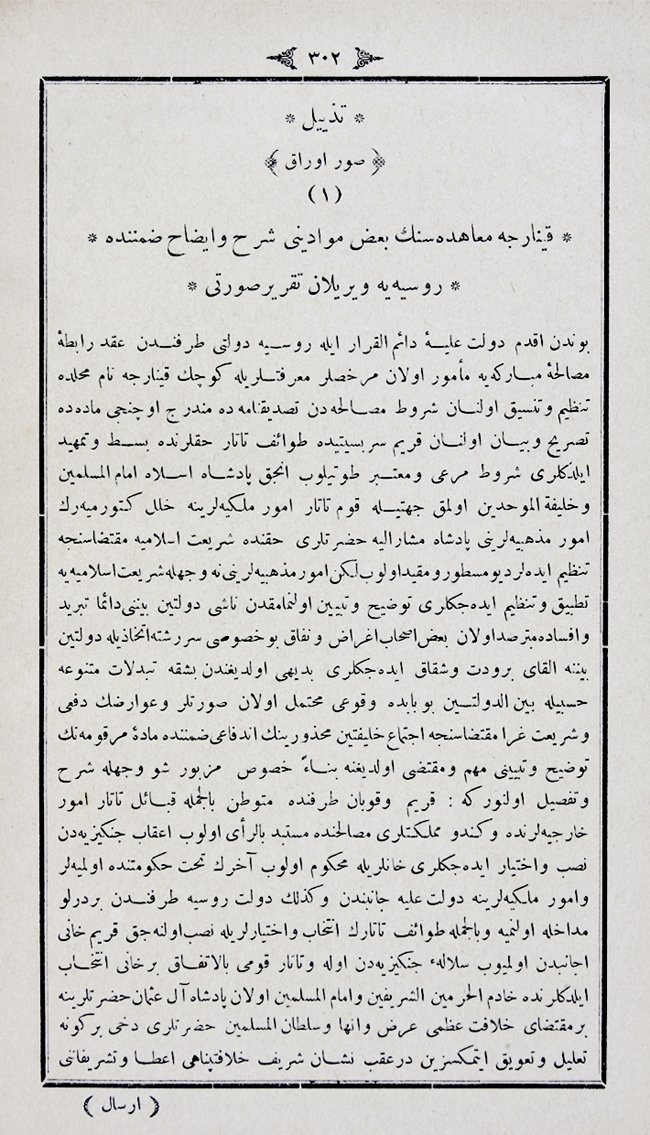 ٣٠٢
* تذييل *
﴿ صور اوراق ﴾
(١)
* قينارجه معاهده‌سنك بعض موادينى شرح وايضاح ضمننده *
* روسيه‌يه ويريلان تقرير صورتى *
بوندن اقدم دولت عليهٔ دائم القرار ايله روسيه دولتى طرفندن عقد رابطهٔ
مصالحهٔ مباركه‌يه مأمور اولان مرخصلر معرفتلريله كوچك قينارجه نام محلده
تنظيم وتنسيق اولنان شروط مصالحه‌دن تصديقنامه ده مندرج اوچنجى ماده‌ده
تصريح وبيان اولنان قريم سربسيتيده طوائف تاتار حقلرنده بسط وتمهيد
ايلدكلرى شروط مرعى ومعتبر طوتيلوب انجق پادشاه اسلاه امام المسلمين
وخليفة الموحدين اولمق جهتيله قوم تاتار امور ملكيه‌لرينه خلل كتورميه‌رك
امور مذهبيه‌لرينى پادشاه مشاراليه حضرتلرى حقنده شريعت اسلاميه مقتضاسنجه
تنظيم ايده‌لر ديو مسطور ومقيد اولوب لكن امور مذهبيه‌لرينى نه وجهله شريعت اسلاميه‌يه
تطبيق وتنظيم ايده‌جكلرى توضيح وتبيين اولنمامقدن ناشى دولتين بيننى دائما تبريد
وافساده مترصد اولان بعض اصحاب اغراض ونفاق بو خصوصى سررشته اتخاذيله دولتين
بيننه القاى برودت وشقاق ايده‌جكلرى بديهى اولديغندن بشقه تبدلات متنوعه
حسبيله بين الدولتين بو بابده وقوعى محتمل اولان صورتلر وعوارضك دفعى
وشريعت غرا مقتضاسنجه اجتماع خليفتين محذورينك اندفاعى ضمننده مادهٔ مرقومه‌نك
توضيح وتبيينى مهم ومقتضى اولديغنه بناءً خصوص مزبور شو وجهله شرح
وتفصيل اولنوركه : قريم وقوبان طرفنده متوطن بالجمله قبائل تاتار امور
خارجيه‌لرنده وكندو مملكتلرى مصالحنده مستبد بالرأى اولوب اعقاب جنكيزيه‌دن
نصب واختيار ايده‌جكلرى خانلريله محكوم اولوب آخرك تحت حكومتنده اولميه‌لر
وامور ملكيه‌لرينه دولت عليه جانبندن وكذلك دولت روسيه طرفندن بردرلو
مداخله اولنميه وبالجمله طوائف تاتارك انتخاب واختيارلريله نصب اولنه‌جق قريم خانى
اجانبدن اولميوب سلالهء جنكيزيه‌دن اوله وتاتار قومى بالاتفاق برخانى انتخاب
ايلدكلرنده خادم الحرمين الشريفين وامام المسلمين اولان پادشاه آل عثمان حضرتلرينه
برمقتضاى خلافت عظمى عرض وانها وسلطان المسلمين حضرتلرى دخى بركونه
تعليل وتعويق ايتمكسزين درعقب نشان شريف خلافتپناهى اعطا وتشريفاتى
( ارسال )